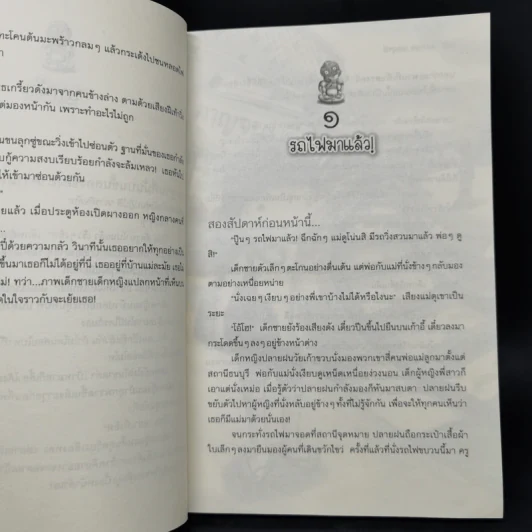 กะโคนต้นมะพร้าวกลมๆ แล้วกระเด้งไปชน
ธเกรี้ยวดังมาจากคนข้างล่าง ตามด้วยเสียง
มองหน้ากัน เพราะทำอะไรไม่ถูก
นขนลุกซู่ขณะวิ่งเข้าไปซ่อนตัว ฐานที่มั่นของเธอกำลัง
กู้ความสงบเรียบร้อยกำลังจะล้มเหลว!
ให้เข้ามาซ่อนด้วยกัน
ยแล้ว เมื่อประตูห้องเปิดผางออก หญิงกลางคน
ปี้ด้วยความกลัว วินาทีนั้นเธออยากให้ทุกอย่าง
ขึ้นมาเธอก็ไม่ได้อยู่ที่นี่ เธออยู่ที่บ้านแม่ละมัย
ม่! ทว่า...ภาพเด็กชายเด็กหญิงแปลกหน้าที่
ดในใจราวกับจะเย้ยเธอ!
๑
รถไฟมาแล้ว!
สองสัปดาห์ก่อนหน้านี้...
“ปู๊นๆ รถไฟมาแล้ว! ฉึกฉักๆ แม่ดูโน่นสิ มีรถวิ่งสวนมาแล้ว พ่อๆ ดู
สิ!”
เด็กชายตัวเล็กตะโกนอย่างตื่นเต้น แต่พ่อกับแม่ที่นั่งข้างๆ กลับมอง
ตามอย่างเหนื่อยหน่าย
“นั่งเฉยๆ เงียบๆ อย่างพี่เขาบ้างไม่ได้หรือไงนะ” เสียงแม่ดุเขาเป็น
ระยะ
“โอ้โฮ!” เด็กชายยังร้องเสียงดัง เดี๋ยวปีนขึ้นไปยืนบนเก้าอี้ เดี๋ยวลงมา
กระโดดขึ้นๆ ลงๆ อยู่ข้างหน้าต่าง
เด็กหญิงปลายฝนวัยเก้าขวบนั่งมองพวกเขาสี่คนพ่อแม่ลูกมาตั้งแต่
สถานีธนบุรี พ่อกับแม่นั่งเงียบดูเหน็ดเหนื่อยง่วงนอน เด็กผู้หญิงพี่สาวก็
เอาแต่นั่งเหม่อ เมื่อรู้ตัวว่าปลายฝนกำลังมองก็หันมาสบตา ปลายฝนรีบ
ขยับตัวไปหาผู้หญิงที่นั่งหลับอยู่ข้างๆ ทั้งที่ไม่รู้จักกัน เพื่อจะให้ทุกคนเห็นว่า
เธอก็มีแม่มาด้วยนั่นเอง!
จนกระทั่งรถไฟมาจอดที่สถานีจุดหมาย ปลายฝนถือกระเป๋าเสื้อผ้า
ใบเล็กๆ ลงมายืนมองผู้คนที่เดินขวักไขว่ ครั้งที่แล้วที่นั่งรถไฟขบวนนี้มา ครู